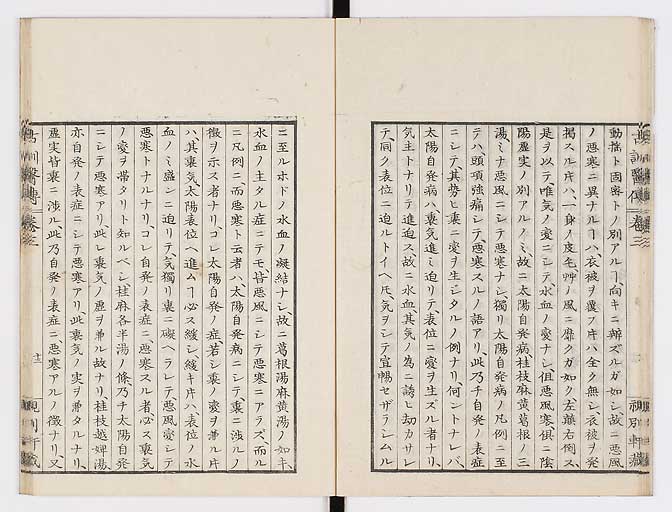 動揺ト固密トノ別アルヿ向キニ辨ズルガ如シ故ニ悪風
ノ悪寒ニ異ナルヿハ衣被ヲ覆ス片ハ全ク無シ衣被ヲ発
掲スル片ハ一身ノ皮毛艸ノ風ニ靡クガ如ク左靡右倒ス
是ヲ以テ唯気ノ変ニシテ水血ノ変ナシ但悪風寒俱ニ陰
陽虚実ノ別アルノミ故ニ太陽自発病桂枝麻黄葛根ノ三
湯ミナ悪風ニシテ悪寒ナシ獨リ太陽自発病ノ凡例ニ至
テハ頭項強痛シテ悪寒スルノ語アリ此乃チ自発ノ表症
ニシテ其勢ヒ裏ニ変ヲ生ジタルノ例ナリ何ントナレバ
太陽自発病ハ裏気進ミ迫リテ表位ニ変ヲ生ズル者ナリ
気主トナリテ進迫ス故ニ水血其気ノ為ニ誘ヒ劫カサレ
テ同ク表位ニ迫ルトイヘ𪜈気ヲシテ宣暢セザラシムル
ニ至ルホドノ水血ノ凝結ナシ故ニ葛根湯麻黄湯ノ如キ
水血ノ主タル症ニテモ皆悪風ニシテ悪寒ニアラズ而ル
ニ凡例ニ而悪寒ト云者ハ太陽自発病ニシテ裏ニ渉ルノ
徴ヲ示ス者ナリコレ太陽自発ノ症若シ裏ノ変ヲ兼ル片
ハ其裏気太陽表位ヘ進ムヿ必ス緩シ緩キ片ハ表位ノ水
血ノミ盛ンニ迫リテ気獨リ裏ニ礙ヘラレテ悪風変シテ
悪寒トナルナリコレ自発ノ表症ニ悪寒スル者必ス裏気
ノ変ヲ帯タリト知ルベシ桂麻各半湯ノ條乃チ太陽自発
ニシテ悪寒アリ此レ裏気ノ虚ヲ兼ル故ナリ桂枝越婢湯
亦自発ノ表症ニシテ悪寒アリ此裏気ノ実ヲ兼タルナリ
虚実皆裏ニ渉ル此乃自発ノ表症ニ悪寒アルノ徴ナリ又